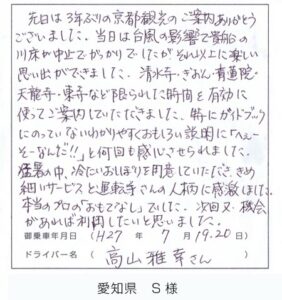 先日は3年ぶりの京都観光のご案内ありがとう
ございました。当日は台風の影響で貴船の
川床が中止でがっかりでしたがそれ以上に楽しい
思い出ができました。清水寺・ぎおん・青蓮院・
天龍寺・東寺など限られた時間を有効に
使ってご案内していただきました。特にガイドブック
にのっていないわかりやすくおもしろい説明に「へぇー
そーなんだ!!」と何回も感心させられました。
猛暑の中、冷たいおしぼりを用意していただき、きめ
細いサービスと運転手さんの人柄に感激しました。
本当のプロの「おもてなし」でした。次回又、機会
があれば利用したいと思いました。
御乗車年月日 (H27 年 7 月 19.20日)
ドライバー名 ( 高山雅幸さん )
愛知県 S様